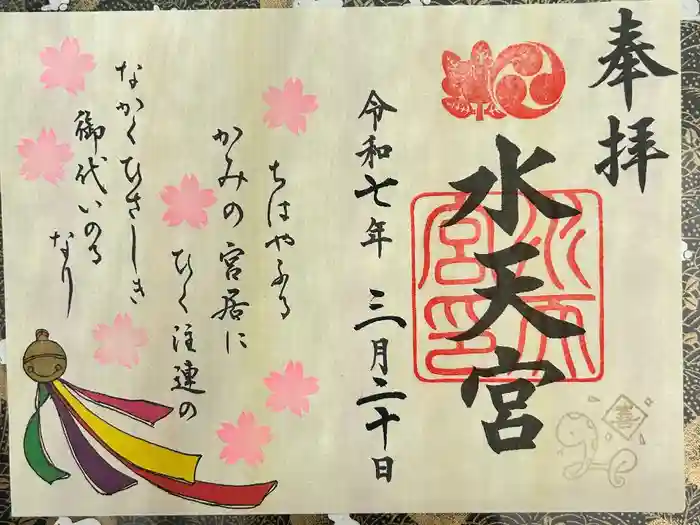 奉拝
水天宮
水天宮印
令和七年 三月二十日
ちはやふる
かみの宮居に
ひく注連の
なかくひさしき
御代いのる
なり
喜